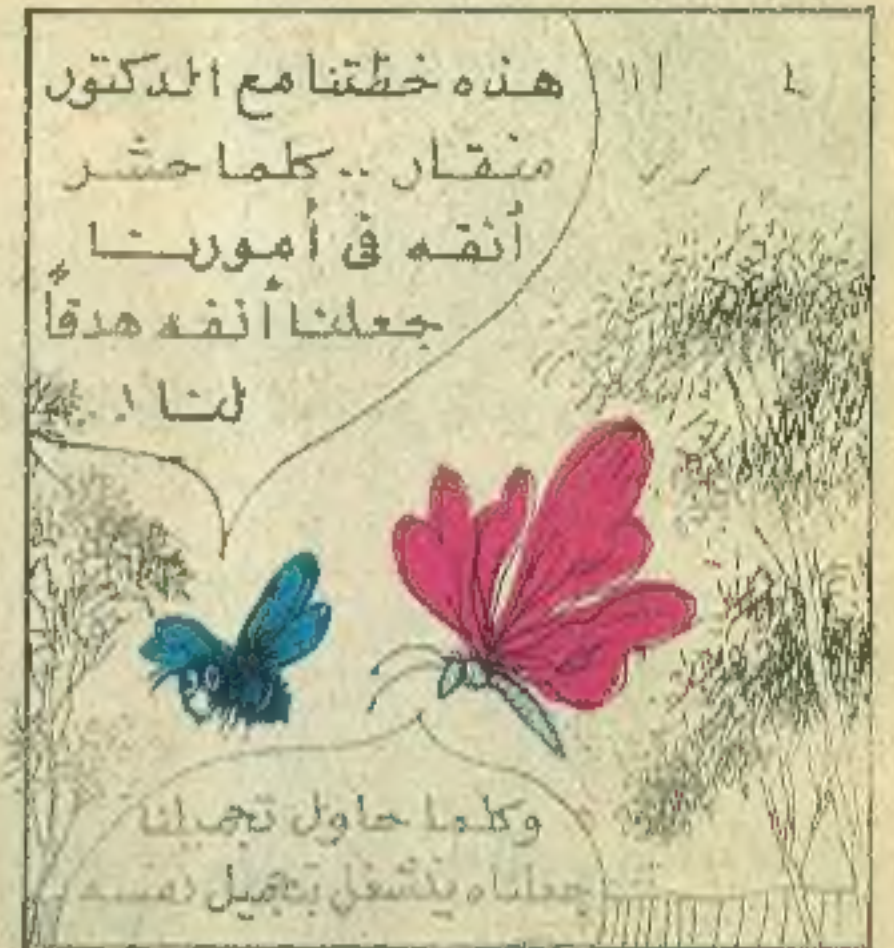 هذه خطتنا مع الدكتور
منقار .. كلما حشر
أنفه فى أمورنا
جعلنا أنفه هدفاً
لنا !..
وكلما حاول تجميلنا
جعلناه ينشغل بتجميل نفسه